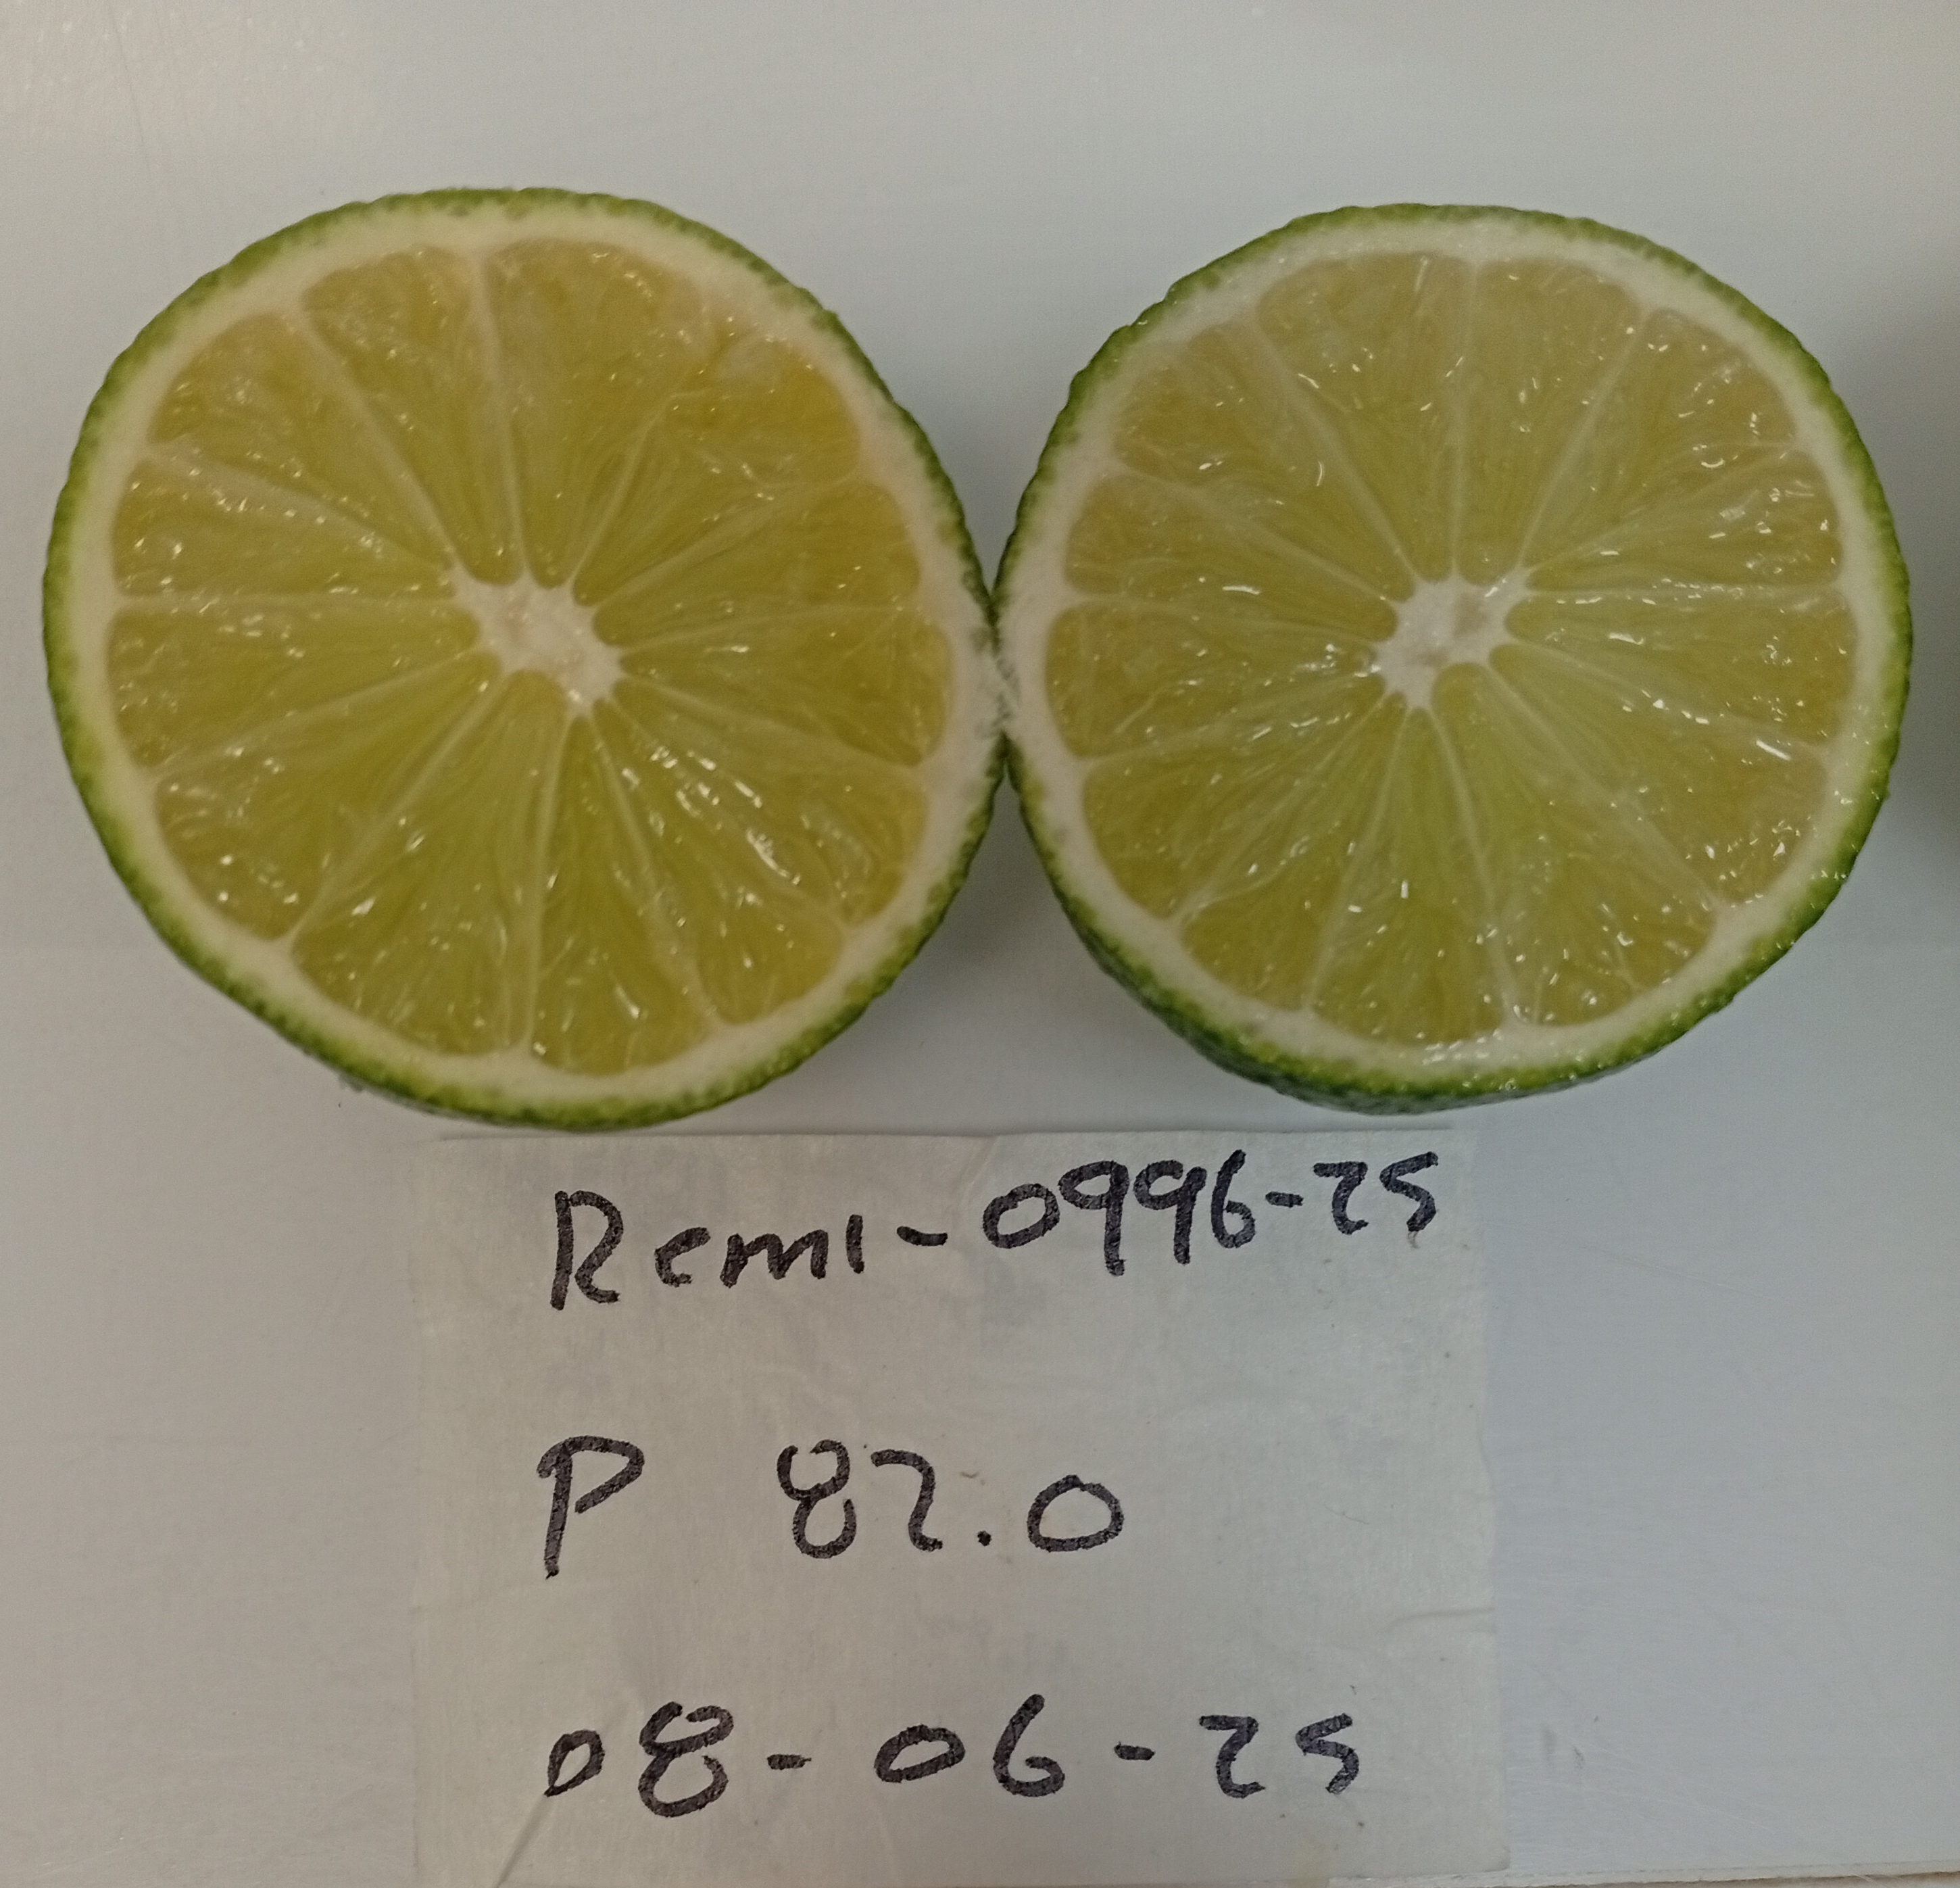 Remi-0996-25
P 82.0
08-06-25